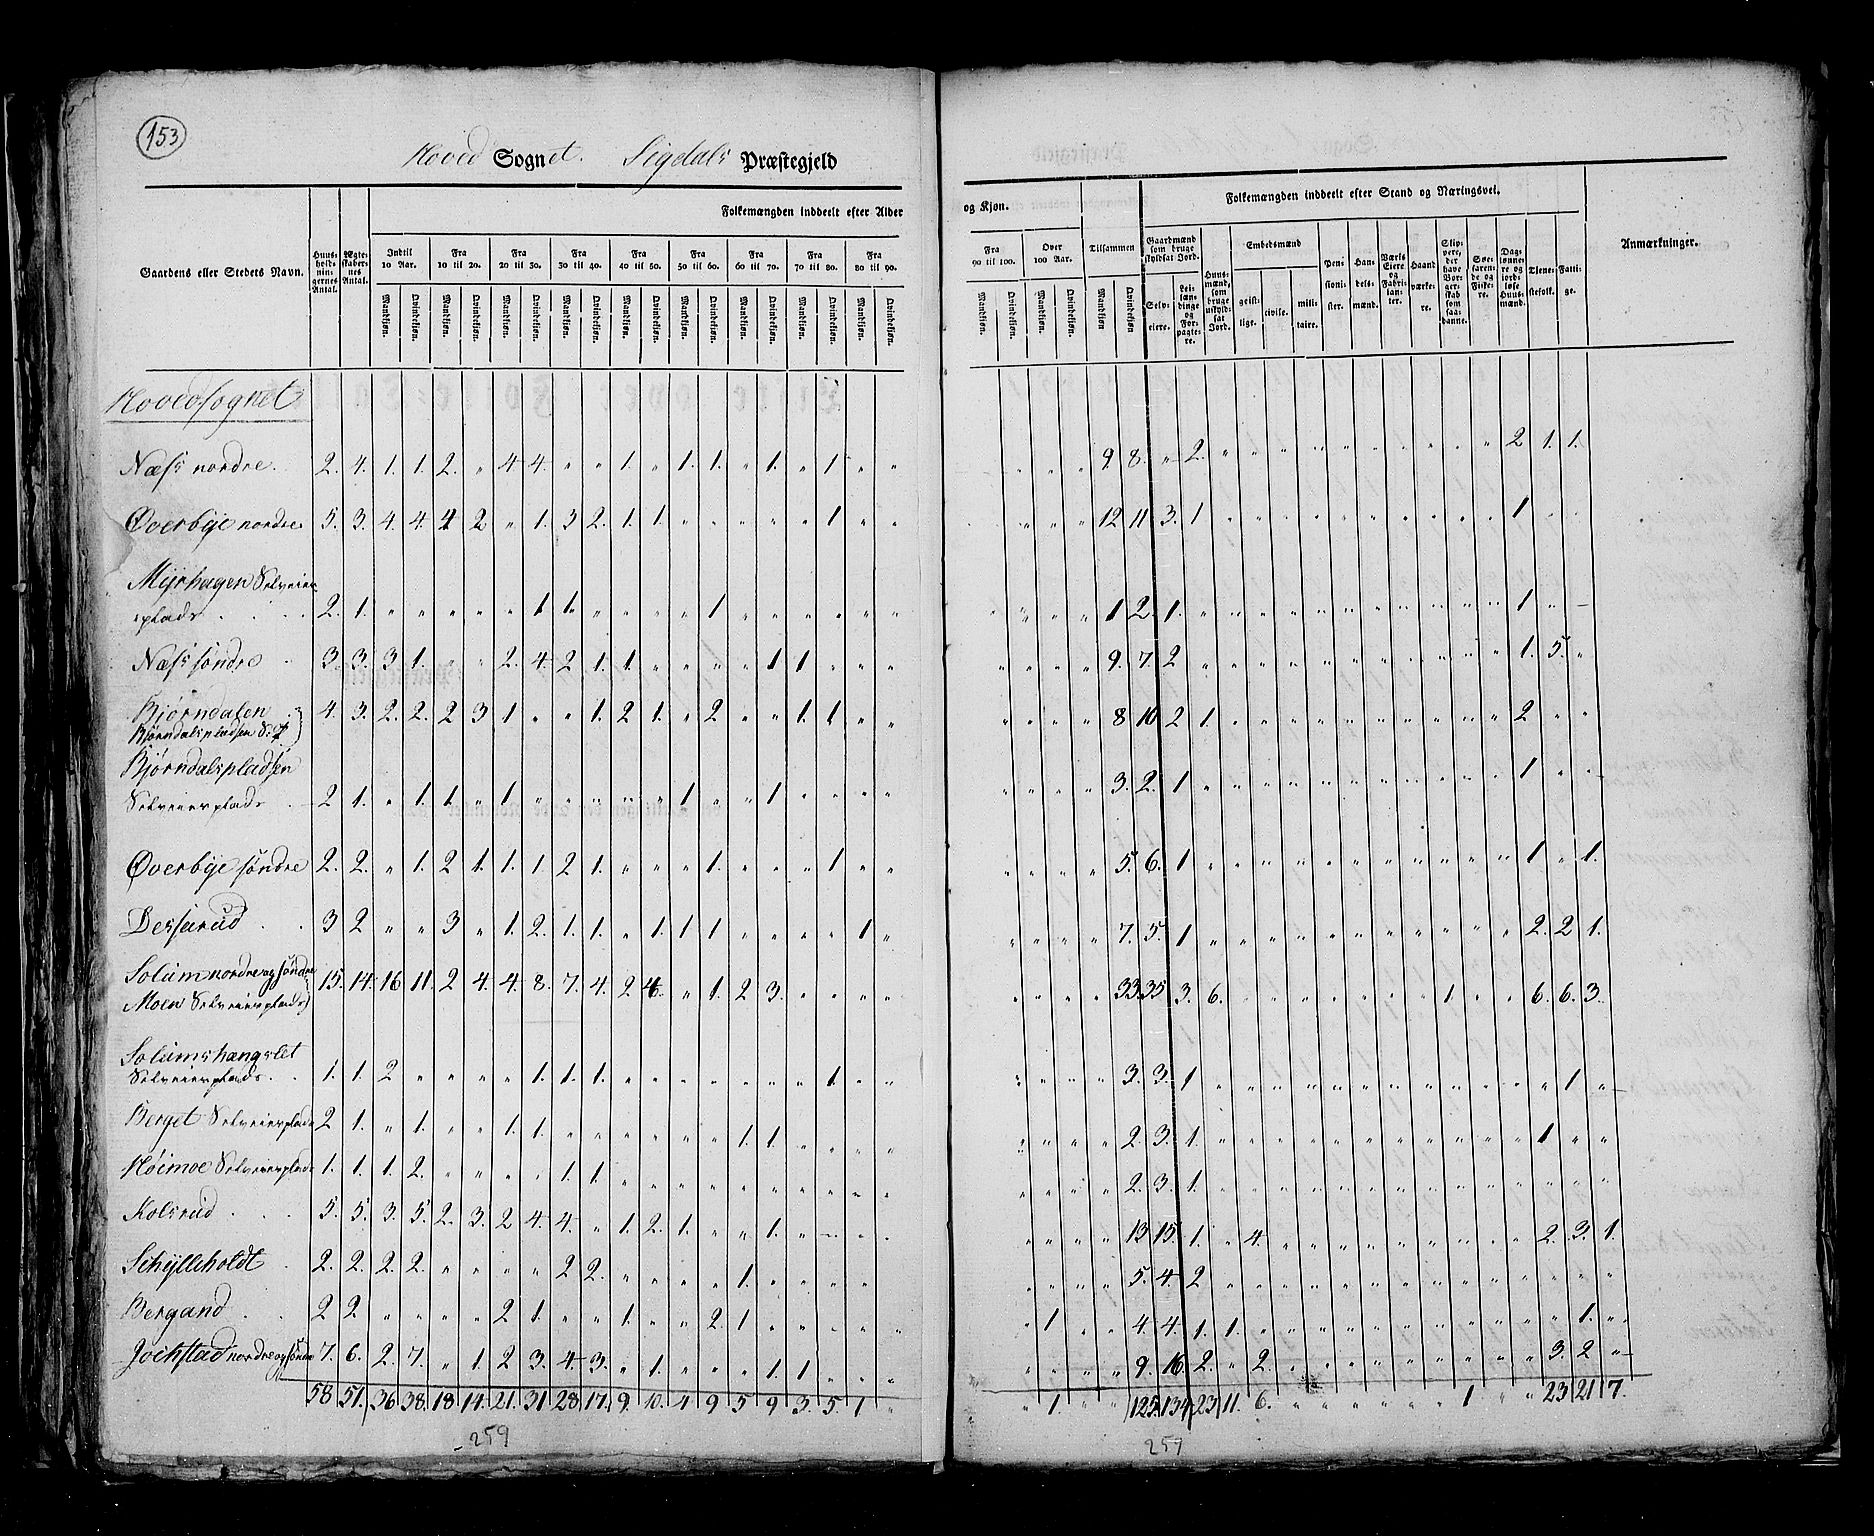 153
Hoved Sognet. Sigdals Præstegjeld
Gaardens eller Stedets Navn. Huus-hold-nin-gernes Antal. Ægte-skaber-nes Antal. Folkemængden inddeelt efter Alder
og Kjøn. Tilsammen Folkemængden inddeelt efter Stand og Næringsvei. Anmærkninger.
Indtil 10 Aar. Fra 10 til 20. Fra 20 til 30. Fra 30 til 40. Fra 40 til 50. Fra 50 til 60. Fra 60 til 70. Fra 70 til 80. Fra 80 til 90.
Fra 90 til 100. Over 100 Aar.
Mandkjøn. Qvindekjøn. Mandkjøn. Qvindekjøn. Mandkjøn. Qvindekjøn. Mandkjøn. Qvindekjøn. Mandkjøn. Qvindekjøn. Mandkjøn. Qvindekjøn. Mandkjøn. Qvindekjøn. Mandkjøn. Qvindekjøn. Mandkjøn. Qvindekjøn.
Mandkjøn. Qvindekjøn. Mandkjøn. Qvindekjøn. Mandkjøn Qvindekjøn
Gaardmænd som bruge skyldsat Jord. Selv-eiere. Lei-læn-dinge og For-pagte-re. Huus-mænd, som bruge uskyld-sat Jord. Embedsmænd geist-lige. civile. mili-taire. Pen-sioni-ster. Han-dels-mænd. Værks Eiere og Fabri-kan-ter. Haand værke-re. Skip-pere, der have Bor-ger-skab som saa-danne. Søe-faren-de og Fiske-re. Dag-lønne-re og jord-løse Huus-mænd. Tiene-stefolk. Fatti-ge.
Hovedsognet
Næss nordre. 2. 4. 1. 1. 2. " 4 4. " " 1. " 1. 1. " 1. " 1 " " " " " " 9. 8. " 2. " " " " " " " " " " 2 1. 1.
Øverbye nordre 5. 3. 4. 4. 4 2 " 1. 3 2. 1. 1. " " " " " 1 " " " " " " 12 11 3. 1 " " " " " " " " " " 1 " "
Myrhagen Selveier
plads 2. 1. " " " " " 1 1. " " " " 1 " " " " " " " " " " 1 2. 1. " " " " " " " " " " " 1 " "
Næss søndre 3. 3. 3 1. " " 2. 4 2 1. 1. " " " " 1 1 " " " " " " " 9. 7. 2 " " " " " " " " " " " 1. 5. "
Bjørndalen 4. 3. 2. 2. 2 3 1 " " 1. 2 1. " 2 " " 1. 1. " " " " " " 8 10 2 1. " " " " " " " " " " 2 " "
Bjørndalspladsen
Bjørndalspladsen
Selveierplads 2 1. " 1. 1. " 1 " " " " " 1 " " 1. " " " " " " " " 3. 2. 1 " " " " " " " " " " " 1 " "
Øverbye søndre 2. 2. " 1. 2 1. 1. 1 2 1. " " " 1. " " " 1 " " " " " " 5. 6. 1 " " " " " " " " " " " 1 " 1.
3 2 " " 3 " 1. 2. 1. 1. " 1. 1 1 " " " " 1 " " " " " 7. 5. 1 " " " " " " " " " " " 2. 2 1.
Solum nordre og søndre
Moen Selveierplads 15. 14. 16 11. 2 4. 4. 8. 7. 4. 2 4. " 1. 2 3. " " " " " " " " 33. 35 3. 6. " " " " " " " 1. " " 6. 6. 3.
Solumshængslet
Selveierplads. 1. 1. 2 " " " " 1. 1. 1. " " " " " " " 1. " " " " " " 3. 3. 1 " " " " " " " " " " " " 1 "
Berget Selveierplads 2 1. " 1. " " 1. 1. " " " " " " 1. 1. " " " " " " " " 2. 3. 1. " " " " " " " " " " " 1 " "
Høimoe Selveierplads 1. 1. 1. 2. " " " " 1. 1. " " " " " " " " " " " " " " 2. 3. 1. " " " " " " " " " " " " " "
Kolsrud 5. 5. 3. 5. 2. 3. 2 4. 4. " 1. 2. 1. " " 1. " " " " " " " " 13 15. 1. " 4. " " " " " " " " " 2. 3. 1.
2. 2. 2. 2. " " " " 2 2. " " " " 1. " " " " " " " " 5. 4. 2 " " " " " " " " " " " " " "
Bergand 2 2. " " " " 2 1. " " 1. " " 2. 1 " " " " " " 1. " " 4. 4. 1. 1. " " " " " " " " " " " 1. "
Jochstad nordre og søndre 7. 6. 2. 7. " 1. 2 3. 4. 3. " 1. " " " 1. 1 " " " " " " " 9. 16. 2. " 2. " " " " " " " " " 3. 2. "
58. 51. 36 38. 18 14. 21. 31 28. 17. 9. 10. 4 9 5 9 3. 5. 1 " " 1. " " 125. 134 23 11. 6. " " " " " " 1 " " 23 21 7.
259
257